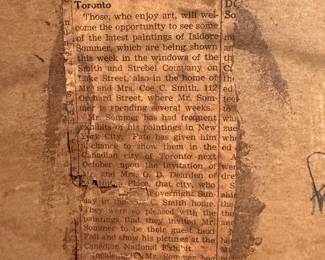 Toronto
Those, who enjoy art, will wel-
come the opportunity to see some
of the latest paintings of Isidore
Sommer, which are being shown
this week in the windows of the
Smith and Strebel Company on
Lake Street, also in the home of
Mr. and Mrs. Coe C. Smith, 112
Orchard Street, where Mr. Som-
mer is spending several weeks.
Mr. Sommer has had frequent
exhibits of his paintings in New
York City. Fate has given him
a chance to show them in the
Canadian city of Toronto next
October upon the invitation of
and Mrs. O. D. Dearden of
Place, that city, who
overnight
in the C. Smith home.
They were so pleased with the
paintings that they invited Mr.
Sommer to be their guest next
Fall and show his pictures at the
Canadian National
Mr. Sommer had